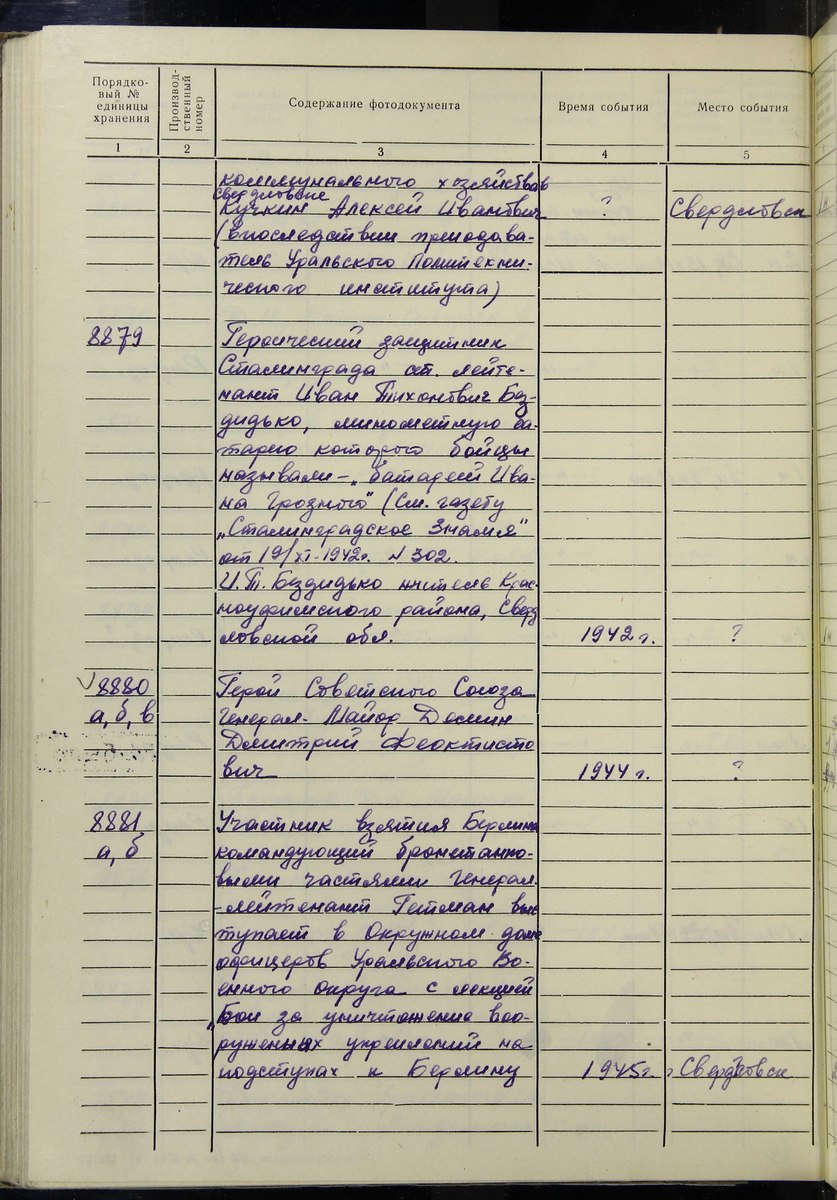 Порядко-
вый №
единицы
хранения
Производ-
ственный
номер
Содержание фотодокумента
Время события
Место события
1 2 3 4 5
коммунального хозяйства в
Свердловске
Кучкин Алексей Иванович ? Свердловск
(впоследствии преподава-
тель Уральского Политехни-
ческого института)
8879 Героический защитник
Сталинграда ст. лейте-
нант Иван Тихонович Без-
дидько, минометную ба-
тарею которого бойцы
называли – „батареей Ива-
на Грозного" (См. газету
„Сталинградское Знамя"
от 19/XI-1942г. N 302.
И.Т. Бездидько житель Крас-
ноуфимского района, Сверд
ловской обл. 1942 г. ?
8880 Герой Советского Союза
а, б, в Генерал-Майор Демин
Дмитрий Феоктисто
вич 1944 г. ?
8881 Участник взятия Берлина
а, б командующий бронетанко-
выми частями Генерал-
-лейтенант Гетман выс
тупает в Окружном доме
офицеров Уральского Во-
енного округа с лекцией
„Бои за уничтожение воо-
руженных укреплений на
подступах к Берлину 1945г. Свердловск